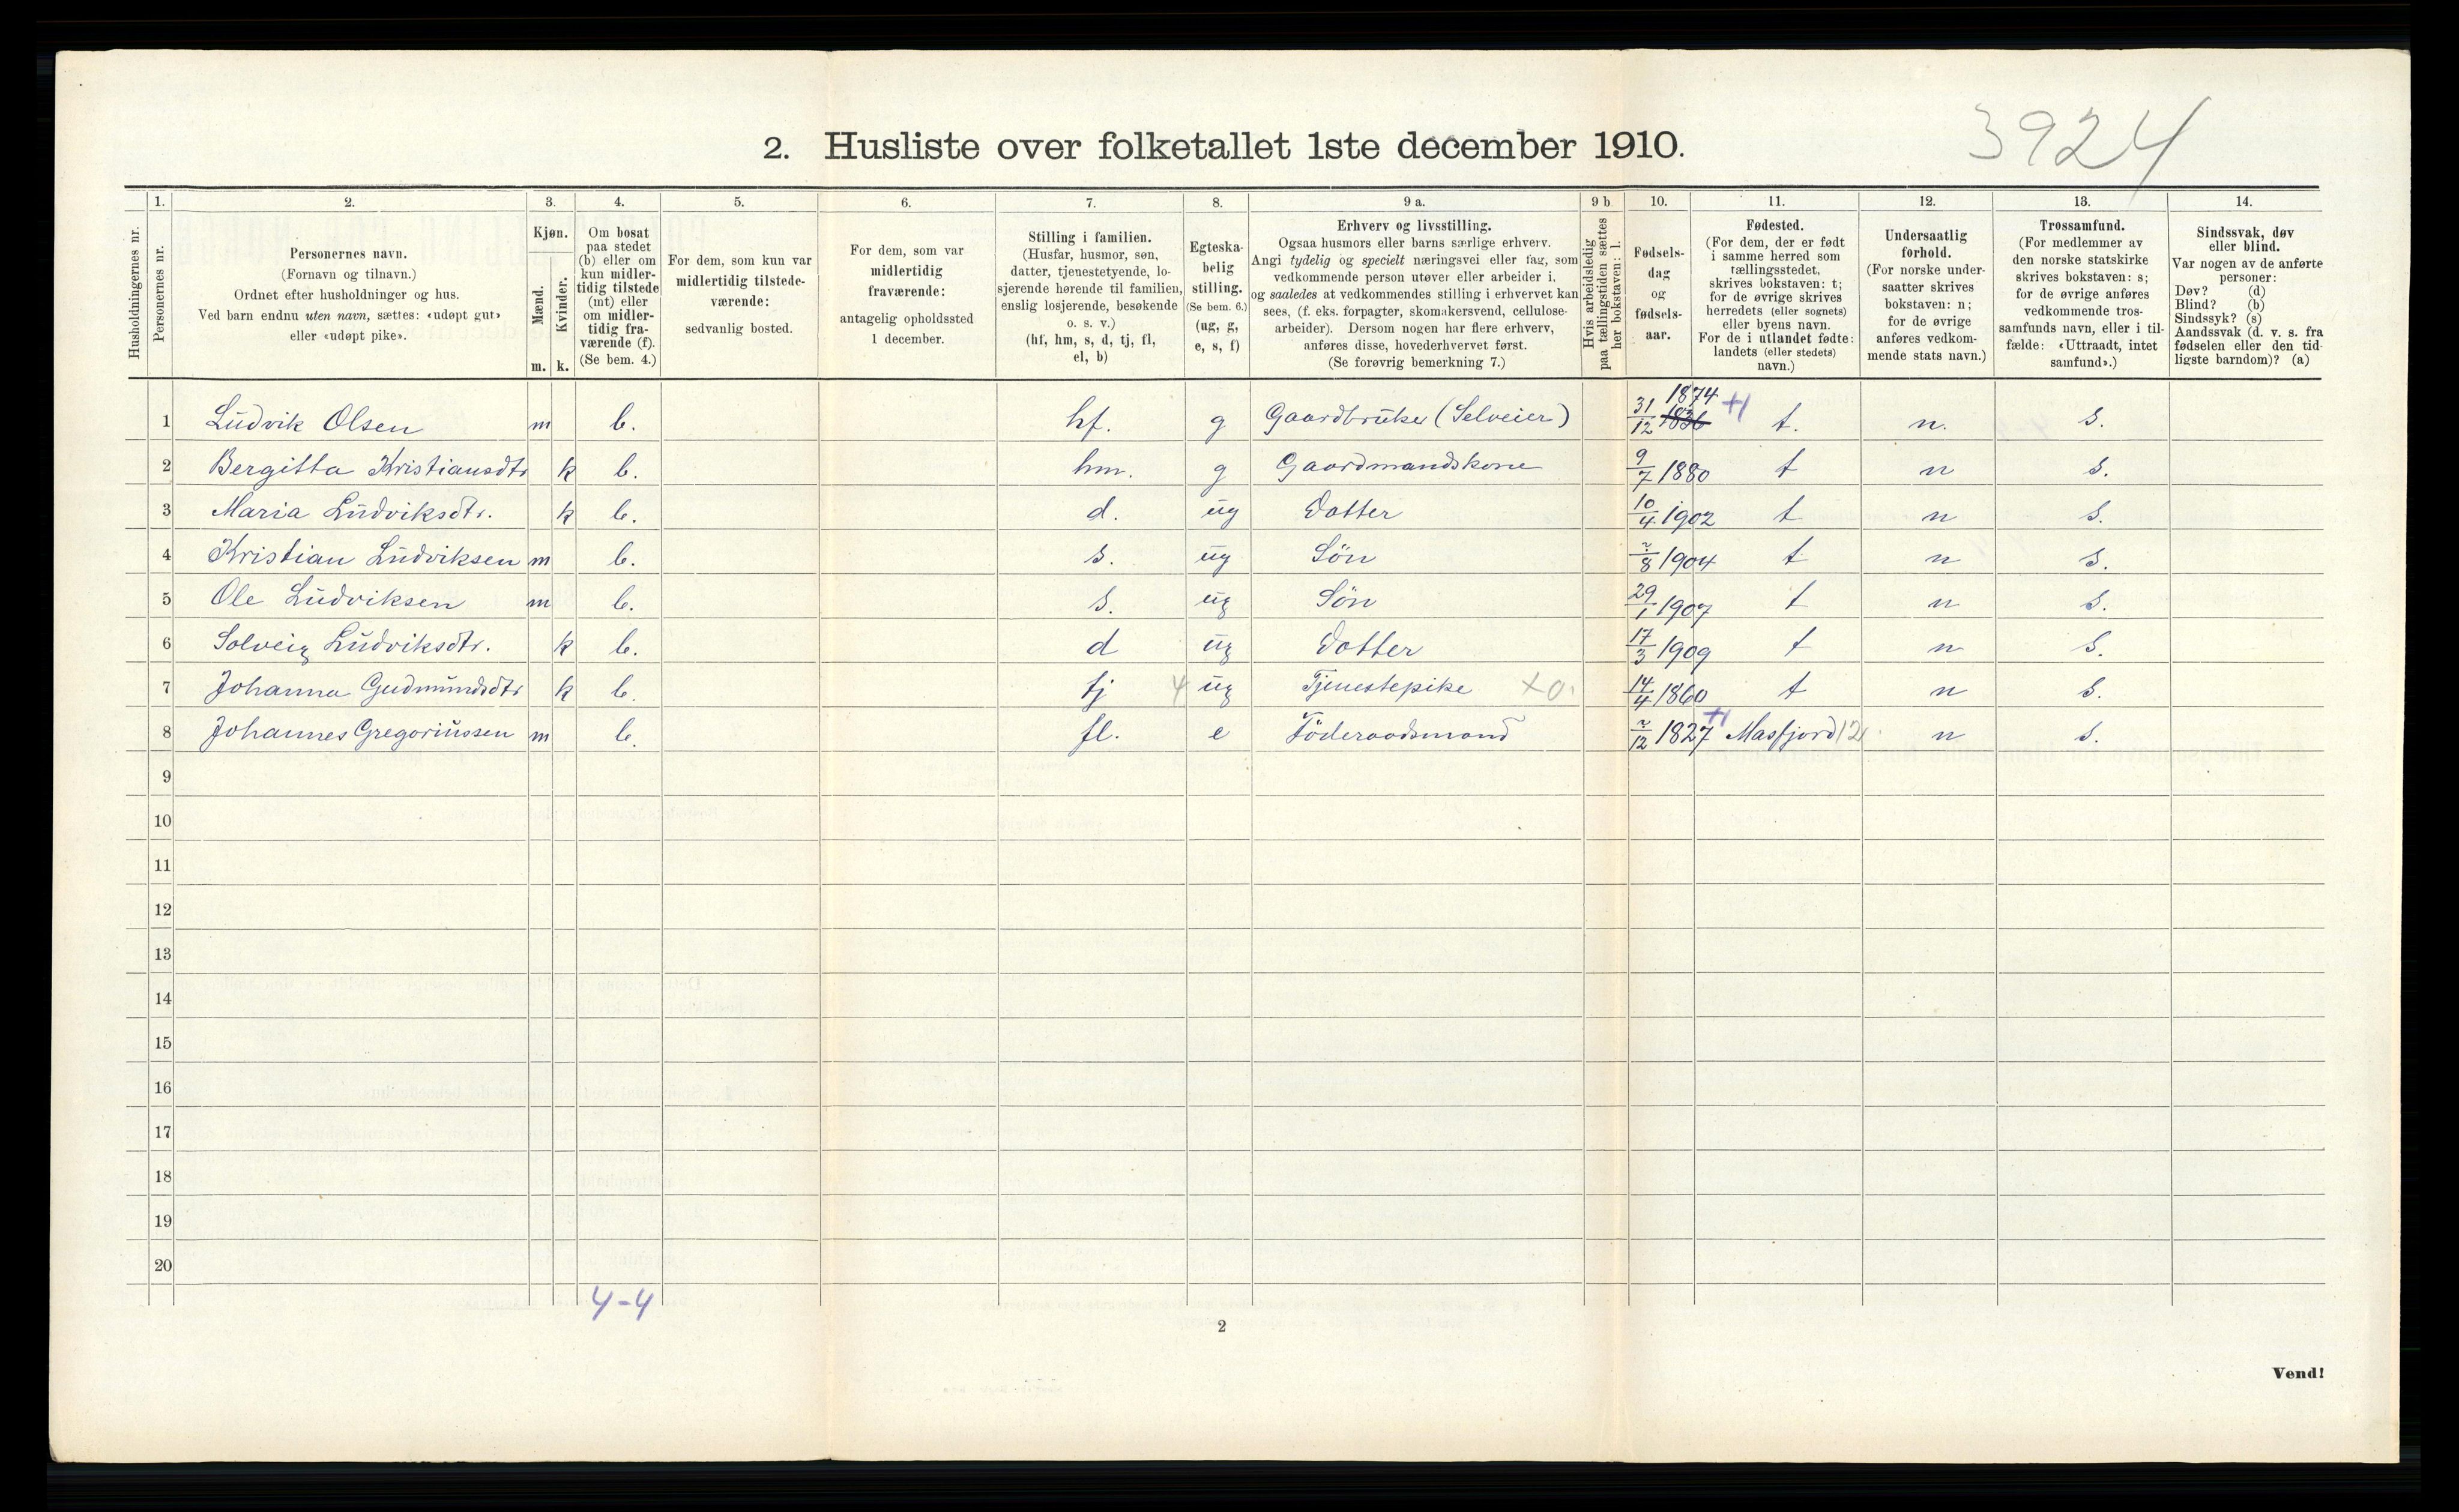 3924
2. Husliste over folketallet 1ste december 1910.
Husholdningernes nr.
1.
Personernes nr.
2.
Personernes navn.
(Fornavn og tilnavn.)
Ordnet efter husholdninger og hus.
Ved barn endnu uten navn, sættes: «udøpt gut»
eller «udøpt pike».
3.
Kjøn.
Mænd.
Kvinder.
m. k.
4.
Om bosat
paa stedet
(b) eller om
kun midler-
tidig tilstede
(mt) eller
om midler-
tidig fra-
værende (f).
(Se bem. 4.)
5.
For dem, som kun var
midlertidig tilstede-
værende:
sedvanlig bosted.
6.
For dem, som var
midlertidig
fraværende:
antagelig opholdssted
1 december.
7.
Stilling i familien.
(Husfar, husmor, søn,
datter, tjenestetyende, lo-
sjerende hørende til familien,
enslig losjerende, besøkende
o. s. v.)
(hf, hm, s, d, tj, fl,
el, b)
8.
Egteska-
belig
stilling.
(Se bem. 6.)
(ug, g,
e, s, f)
9 a.
Erhverv og livsstilling.
Ogsaa husmors eller barns særlige erhverv.
Angi tydelig og specielt næringsvei eller fag, som
vedkommende person utøver eller arbeider i,
og saaledes at vedkommendes stilling i erhvervet kan
sees, (f. eks. forpagter, skomakersvend, cellulose-
arbeider). Dersom nogen har flere erhverv,
anføres disse, hovederhvervet først.
(Se forøvrig bemerkning 7.)
9 b
Hvis arbeidsledig
paa tællingstiden sættes
her bokstaven: l.
10.
Fødsels-
dag
og
fødsels-
aar.
11.
Fødested.
(For dem, der er født
i samme herred som
tællingsstedet,
skrives bokstaven: t;
for de øvrige skrives
herredets (eller sognets)
eller byens navn.
For de i utlandet fødte:
landets (eller stedets)
navn.)
12.
Undersaatlig
forhold.
(For norske under-
saatter skrives
bokstaven: n;
for de øvrige
anføres vedkom-
mende stats navn.)
13.
Trossamfund.
(For medlemmer av
den norske statskirke
skrives bokstaven: s;
for de øvrige anføres
vedkommende tros-
samfunds navn, eller i til-
fælde: «Uttraadt, intet
samfund».)
14.
Sindssvak, døv
eller blind.
Var nogen av de anførte
personer:
Døv? (d)
Blind? (b)
Sindssyk? (s)
Aandssvak (d. v. s. fra
fødselen eller den tid-
ligste barndom)? (a)
1 Ludvik Olsen m b. hf. g Gaardbruker (Selveier) 31/12 1836 1874 +1 t. n. s.
2 Bergitta Kristiansdtr k b. hm. g Gaardmandskone 9/7 1880 t n s.
3 Maria Ludviksdtr. k b. d. ug Datter 10/4 1902 t n s.
4 Kristian Ludviksen m b. s. ug Sön 2/8 1904 t n s.
5 Ole Ludviksen m b. s. ug Sön 29/1 1907 t n s.
6 Solveig Ludviksdtr. k b. d ug Datter 17/3 1909 t n s.
7 Johanna Gudmundsdtr k b. tj 4 ug Tjenestepike x0. 14/4 1860 t n s.
8 Johannes Gregoriussen m b. fl. e Föderaadsmand 2/12 1827 +1 Masfjord 12 n s.
9
10
11
12
13
14
15
16
17
18
19
20
4-4
2
Vend!